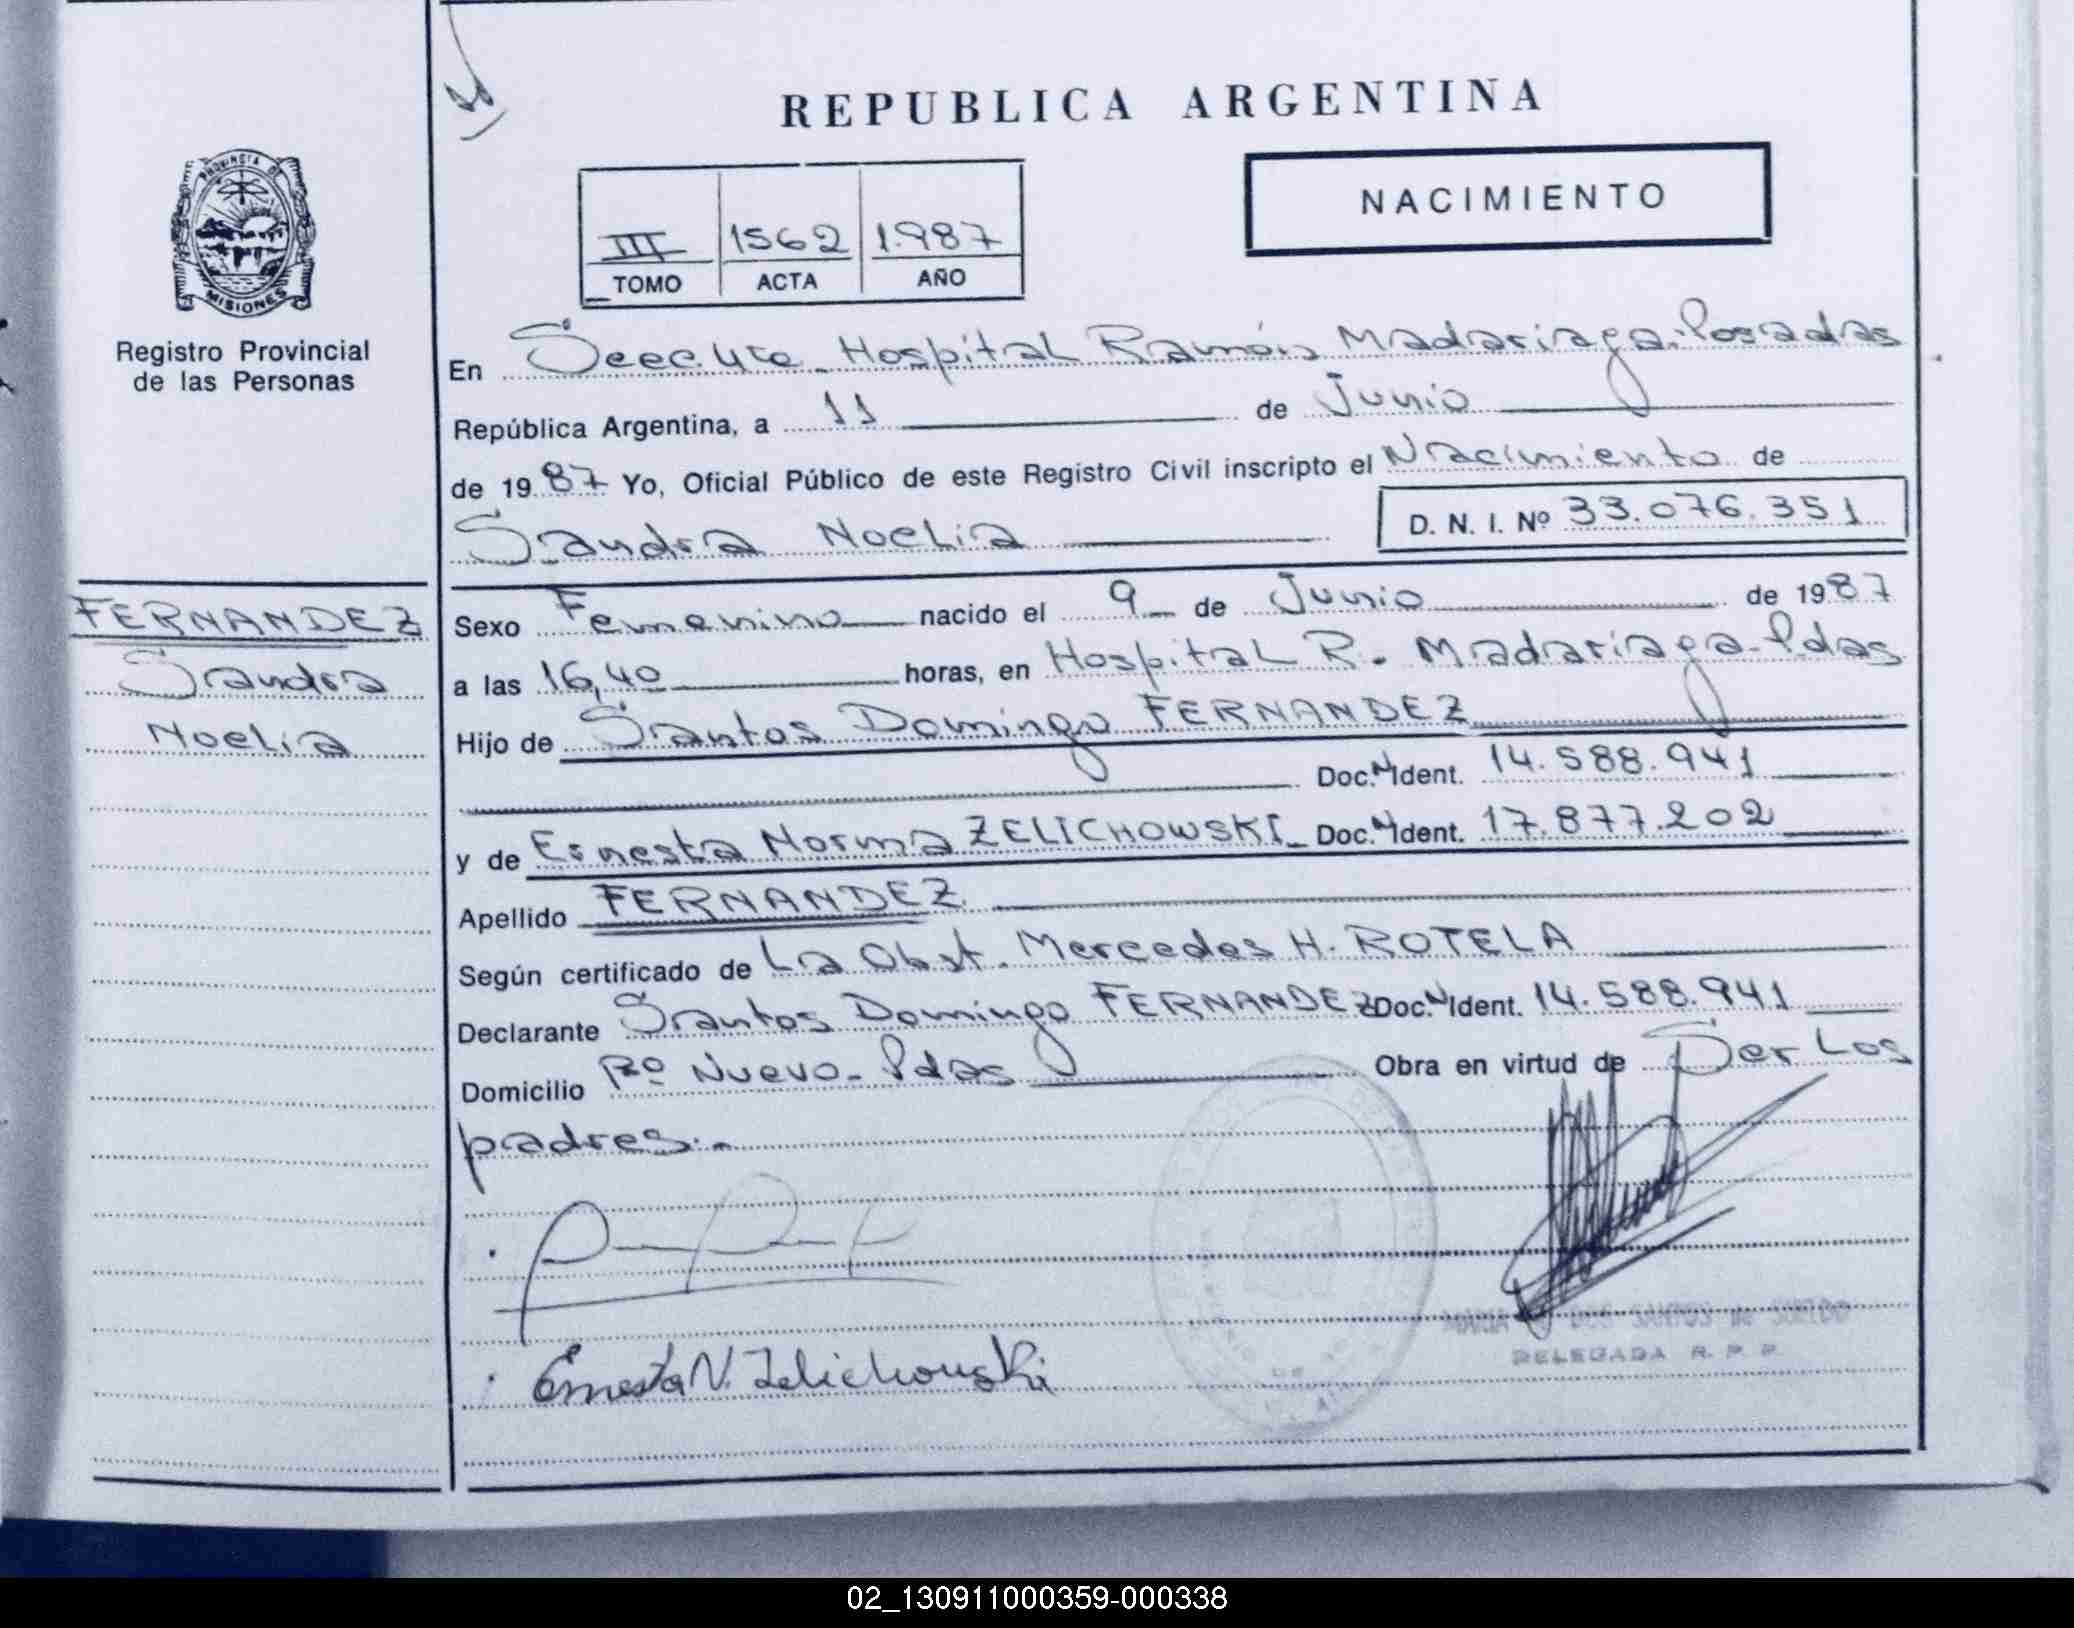 REPUBLICA ARGENTINA
NACIMIENTO
III 1562 1987
TOMO ACTA AÑO
PROVINCIA DE
MISIONES
Registro Provincial
de las Personas
En Hospital Ramón Madariaga. Posadas
República Argentina, a 11 de Junio
de 1987 Yo, Oficial Público de este Registro Civil inscripto el Nacimiento de
Sandra Noelia D. N. I. Nº 33.076.351
FERNANDEZ
Sandra
Noelia
Sexo Femenino nacido el 9 de Junio de 1987
a las 16,40 horas, en Hospital R. Madariaga-Pdas
Hijo de Santos Domingo FERNANDEZ
Doc. Ident. 14.588.941
y de Ernesta Norma ZELICHOWSKI Doc. Ident. 17.877.202
Apellido FERNANDEZ
Según certificado de La Obst. Mercedes H. ROTELA
Declarante Santos Domingo FERNANDEZ Doc. Ident. 14.588.941
Domicilio Bº Nuevo-Pdas Obra en virtud de Ser Los
padres.-
Ernesta N. Zelichowski
DELEGADA R. P. P.
02_130911000359-000338